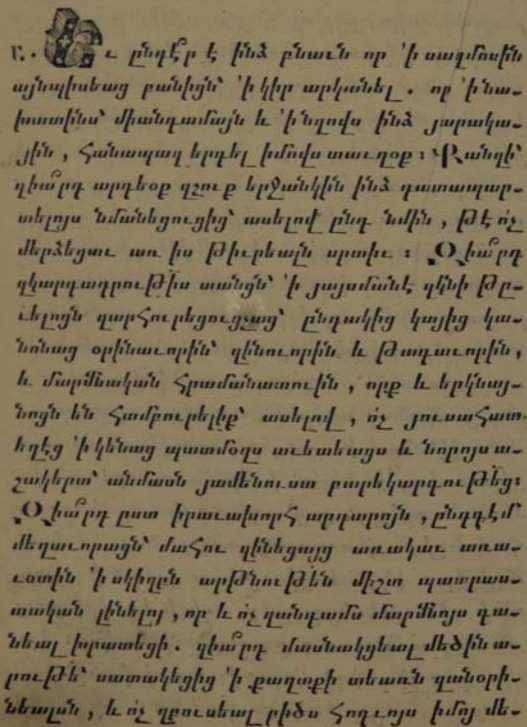 ր. Եւ ընդէ՞ր է ինձ բնաւն որ ՚ի սաղմոսին
այնպիսեաց բանիցն՝ ՚ի կիր արկանել. որ ՚ի նա-
խատինս՝ միանգամայն և ՚ի նղովս ինձ յարակա-
յին, հանապազ երգել իմովս տաւղօք: Քանզի՝
զիա՞րդ արդեօք զշուք երջանկին ինձ դատապար-
տելոյս նմանեցուցից՝ ասելով ընդ նմին, թէ ոչ
մերձեցաւ առ իս թիւրեալն սրտիւ: Զիա՞րդ
զկարգադրութիս տանցն՝ ՚ի յայսմանէ զկնի թը-
ւելոցն զարհուրեցուցչաց՝ ընդակից կայից կա-
նոնաց օրինաւորին՝ զինուորին և թագաւորին,
և մարմնական հրամանատուին, որք և երկնայ-
նոցն են համբուրելիք՝ ասելով, ոչ յուսահատ
եղէց ՚ի կենաց պատմօղս աւետեացս և նորոյս ա-
շակերտ՝ անմասն յամենուստ բարեկարգութեց:
Զիա՞րդ ըստ իրաւախորհ արդարոյն, ընդդէմ
մեղաւորացն՝ մահու զինեցայց առակաւ առա-
ւօտին ՚ի սկիզբն արթնութեն միշտ պատրաս-
տական լինելոյ, որ և ոչ զանդամս մարմնոյս գա-
նեալ խրատեցի. զիա՞րդ մասնակցեալ մեծին ա-
րութե՝ սատակեցից ՚ի քաղաքի տեառն զանօրի-
նեալսն, և ոչ զբուսեալ բիծս հողւոյս իմոյ մե-